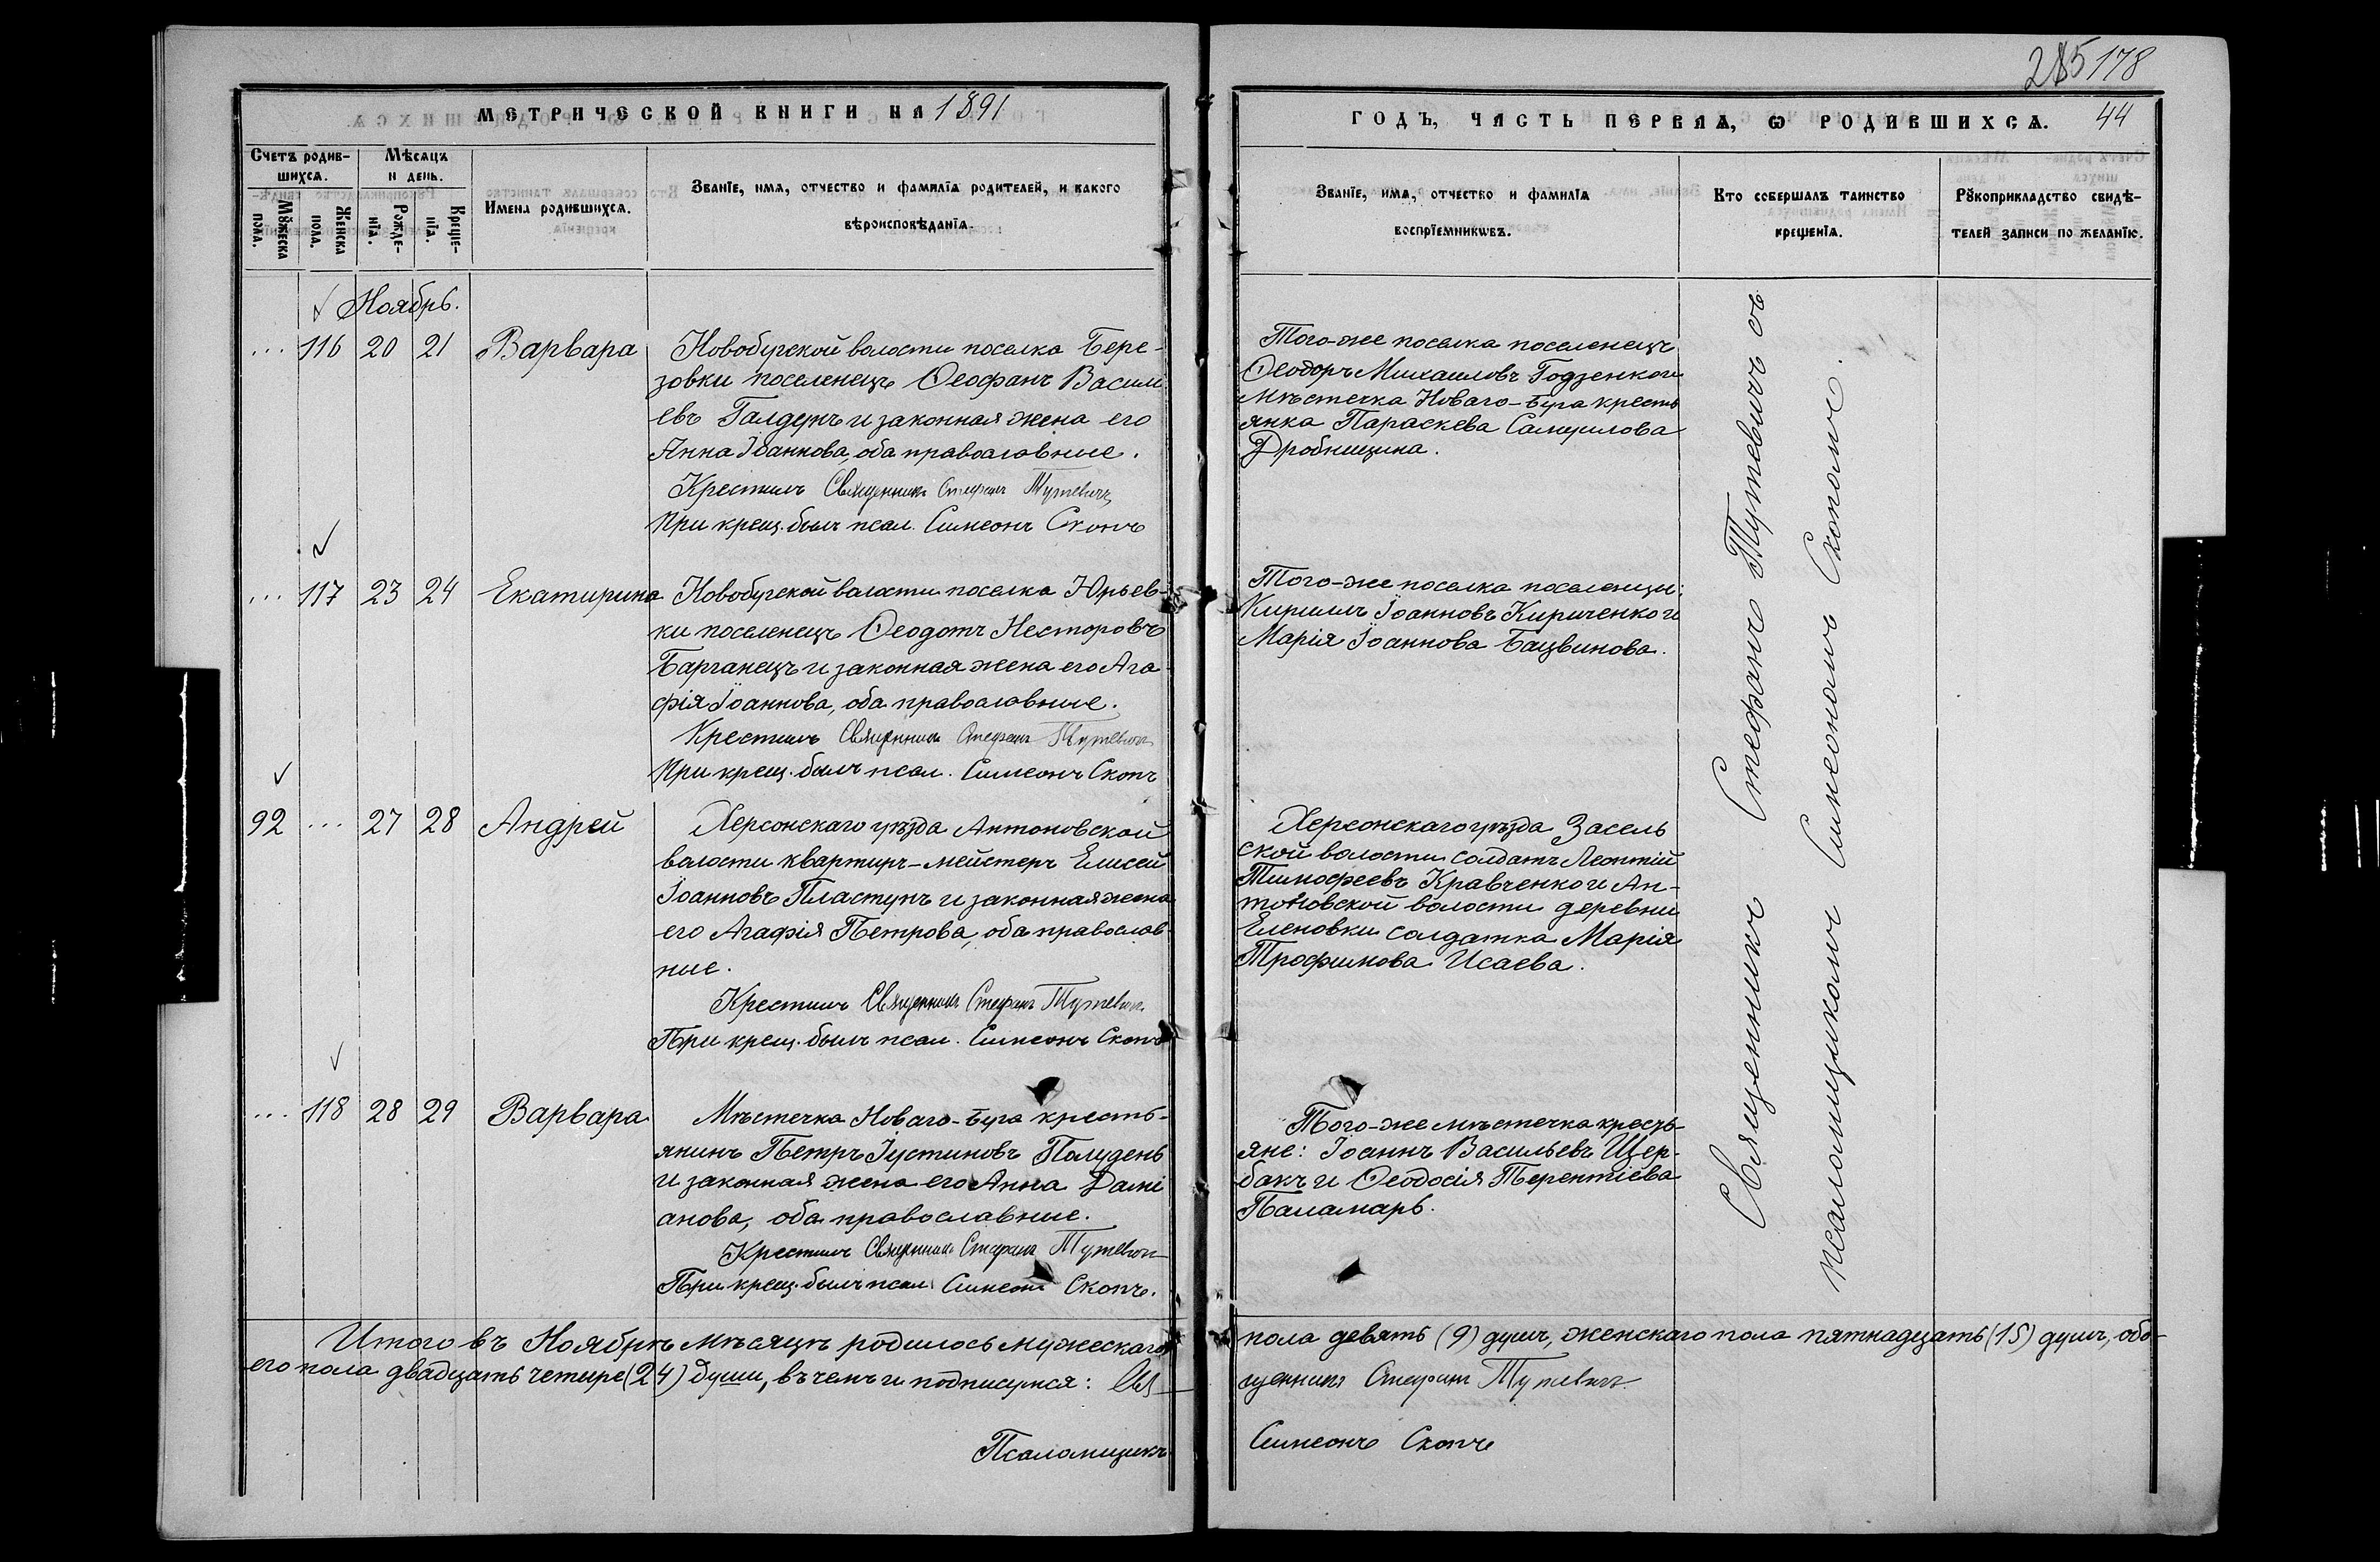 285 178
МЕТРИЧЕСКОЙ КНИГИ НА 1891
ГОДЪ, ЧАСТЬ ПЕРВАѦ, Ѡ РОДИВШИХСѦ. 44
Счетъ родив-
шихсѧ.
Мѣсяцъ
и день.
Мꙋжеска
пола.
Женска
пола.
Рожде-
нїѧ.
Креще-
нїѧ.
Имена родившихсѧ.
Званїе, имѧ, отчество и фамилїѧ родителей, и какого
вѣроисповѣданїѧ.
Званїе, имѧ, отчество и фамилїѧ
воспрїемникѡвъ.
Кто совершалъ таинство
крещенїѧ.
Рꙋкоприкладство свидѣ-
телей записи по желанїю.
Ноябрь.
... 116 20 21 Варвара
Новобугской волости поселка Бере-
зовки поселенецъ Ѳеофанъ Васили-
евъ Галдунъ и законная жена его
Анна Іоаннова, оба православные.
Крестилъ Священникъ Стефанъ Тутевичъ
При крещ. былъ псал. Симеонъ Скопъ
Того-же поселка поселенецъ
Ѳеодоръ Михаиловъ Годзенко и
мѣстечка Новаго-Буга кресть
янка Параскева Самуилова
Дробницина.
... 117 23 24 Екатирина
Новобугской волости поселка Юрьев-
ки поселенецъ Ѳеодотъ Несторовъ
Барганецъ и законная жена его Ага-
фія Іоаннова, оба православные.
Крестилъ Священникъ Стефанъ Тутевичъ
При крещ. былъ псал. Симеонъ Скопъ
Того-же поселка поселенцы:
Кириллъ Іоанновъ Кириченко и
Марія Іоаннова Бацвинова.
92 ... 27 28 Андрей
Херсонскаго уѣзда Антоновской
волости квартиръ-мейстеръ Елисей
Іоанновъ Пластунъ и законная жена
его Агафія Петрова, оба православ-
ные.
Крестилъ Священникъ Стефанъ Тутевичъ
При крещ. былъ псал. Симеонъ Скопъ
Херсонскаго уѣзда Засель
ской волости солдатъ Леонтій
Тимофеевъ Кравченко и Ан-
тоновской волости деревни
Еленовки солдатка Марія
Трофимова Исаева.
... 118 28 29 Варвара
Мѣстечка Новаго-Буга кресть-
янинъ Петръ Іустиновъ Полудень
и законная жена его Анна Дамі
анова, оба православные.
Крестилъ Священникъ Стефанъ Тутевичъ
При крещ. былъ псал. Симеонъ Скопъ.
Того-же мѣстечка кресть-
яне: Іоаннъ Васильевъ Щер-
бакъ и Ѳеодосія Терентіева
Паламарь.
Священникъ Стефанъ Тутевичъ съ
псаломщикомъ Симеономъ Скопомъ.
Итого въ Ноябрѣ мѣсяцѣ родилось мужескаго
пола девять (9) душъ, женскаго пола пятнадцать (15) душъ, обо-
его пола двадцать четыре (24) души, въ чемъ и подписуемся: Свя
щенникъ Стефанъ Тутевичъ
Псаломщикъ
Симеонъ Скопъ